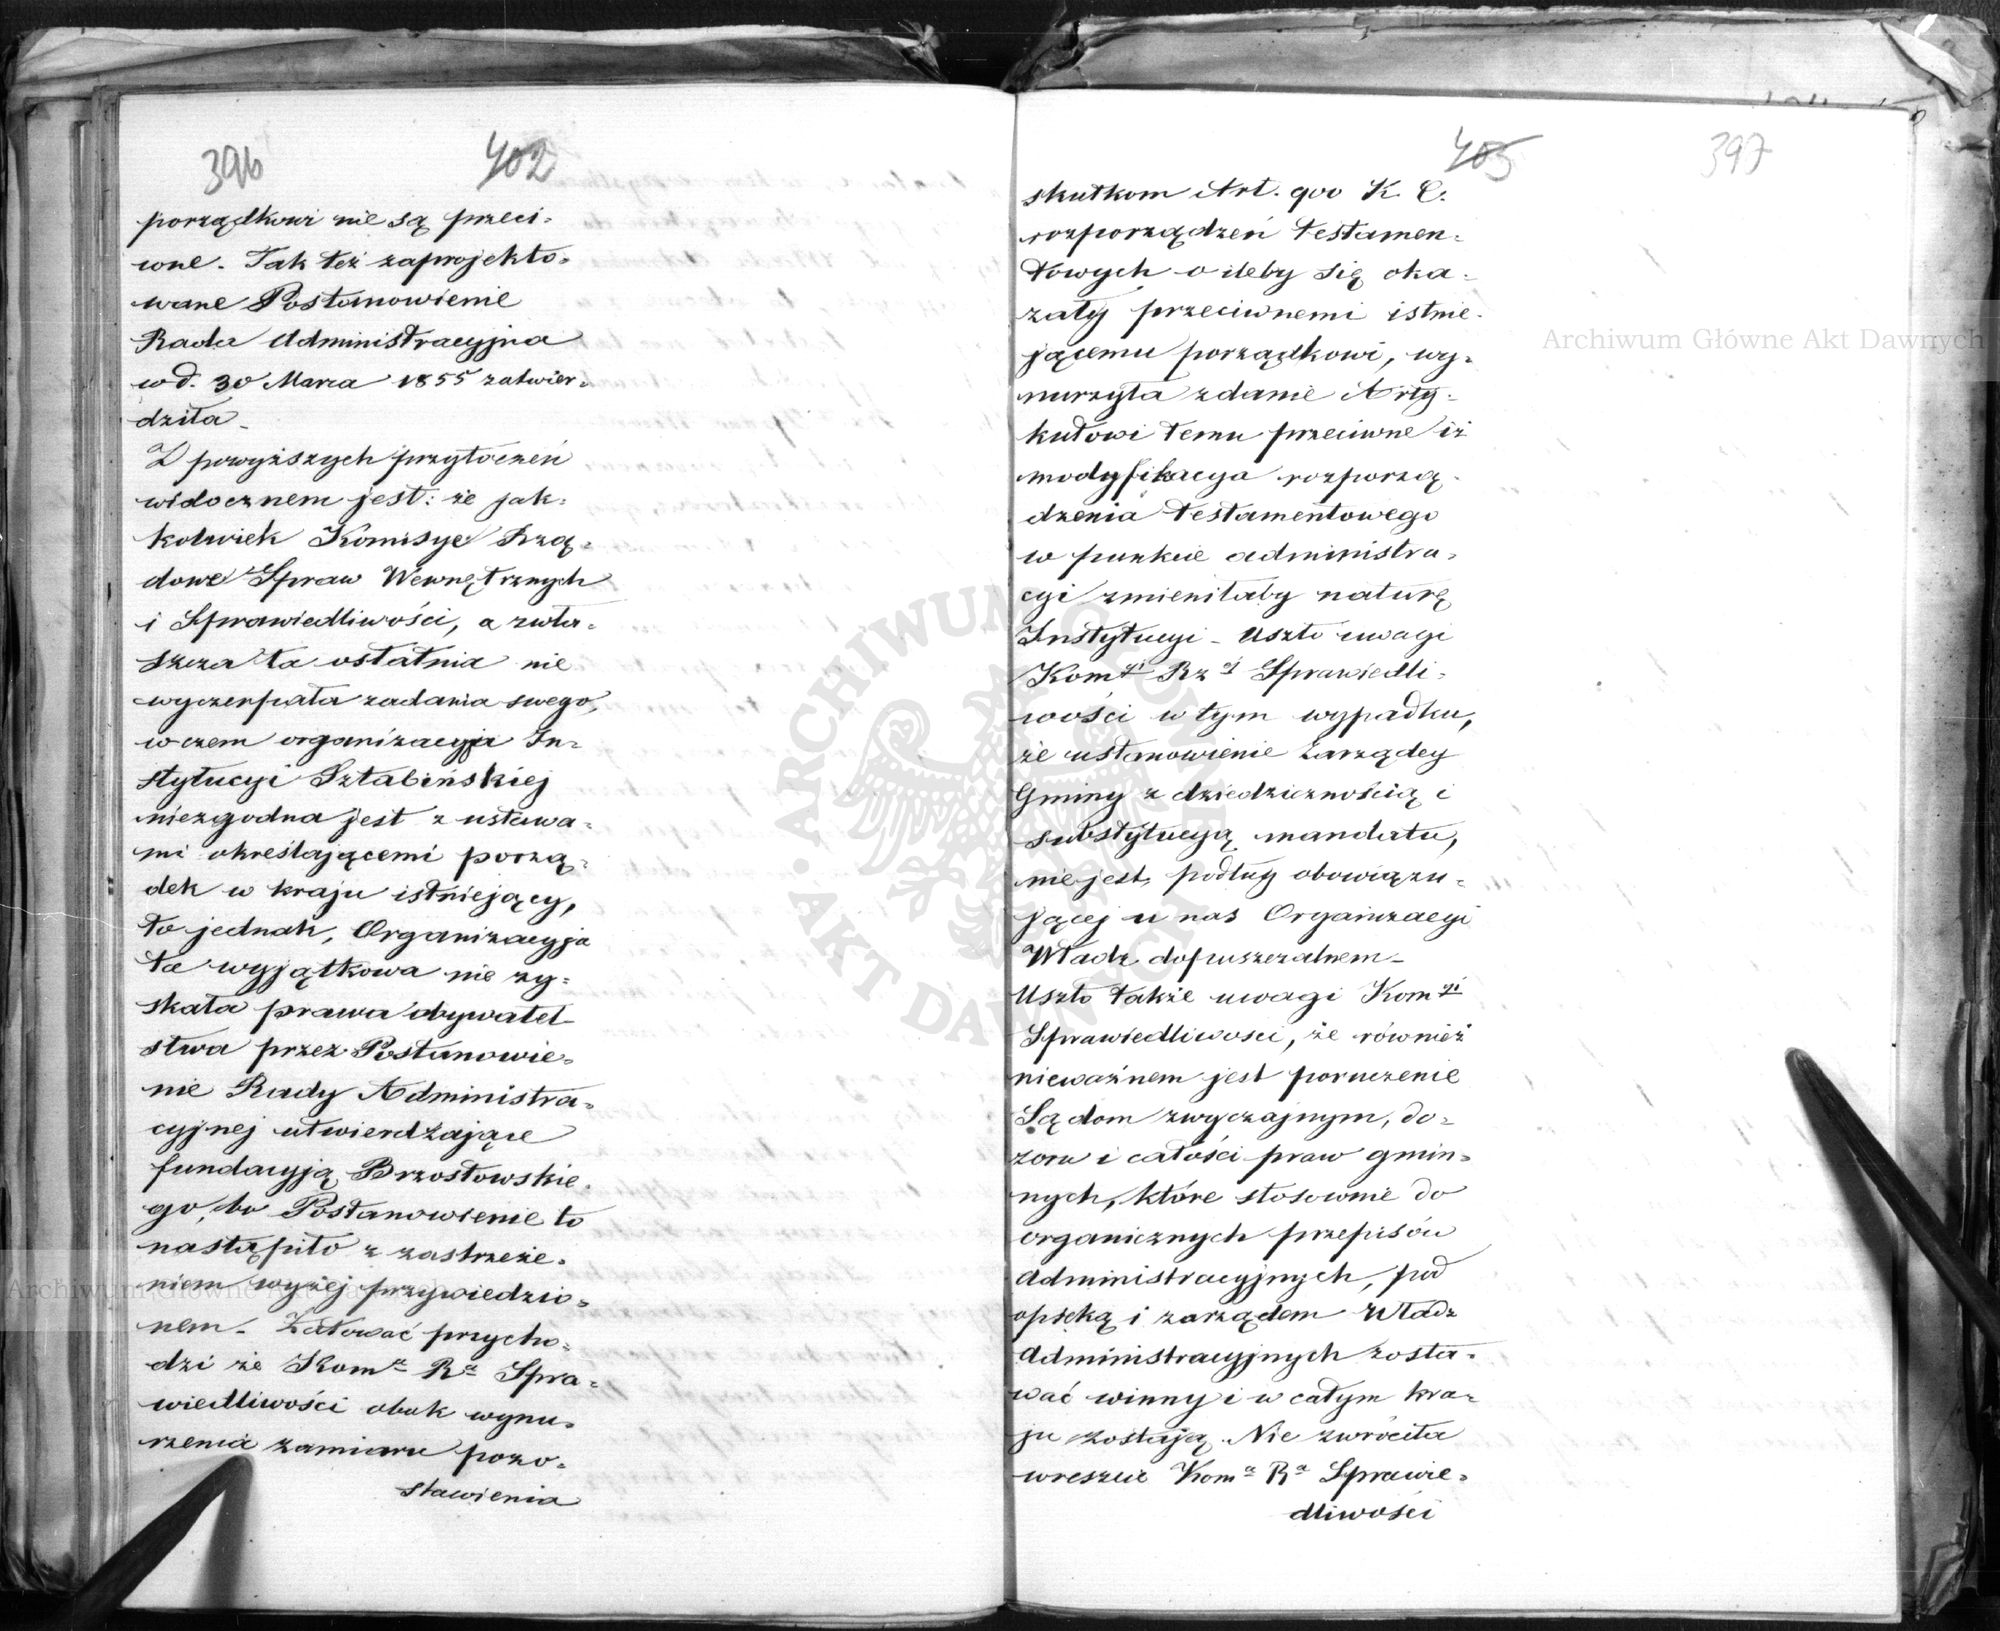 396 402
porządkowi nie są przeci-
wne. Tak też zaprojekto-
wane Postanowienie
Rada Administracyjna
w d. 30 Marca 1855 zatwier-
dziła
Z powyższych przytoczeń
widocznem jest: że jak-
kolwiek Komisye Rzą-
dowe Spraw Wewnętrznych
i Sprawiedliwości, a zwła-
szcza ta ostatnia nie
wyczerpała zadania swego,
w czem organizacyja In-
stytucyi Sztabińskiej
niezgodna jest z ustawa-
mi określającemi porzą-
dek w kraju istniejący,
to jednak, Organizacyja
ta wyjątkowa nie zy-
skała prawa obywatel
stwa przez Postanowie-
nie Rady Administra-
cyjnej utwierdzające
fundacyją Brzostowskie-
go, bo Postanowienie to
nastąpiło z zastrzeże-
niem wyżej przywiedzio-
nem. Żałować przycho-
dzi że Kom^a R^a Spra-
wiedliwości obok wynu-
rzenia zamiaru pozo-
stawienia
403 397
skutkom Art. 900 K. C.
rozporządzeń testamen-
towych o ileby się oka-
zały przeciwnemi istnie-
jącemu porządkowi, wy-
nurzyła zdanie Arty-
kułowi temu przeciwne iż
modyfikacya rozporzą-
dzenia testamentowego
w punkcie administra-
cyi zmieniłaby naturę
Instytucyi - Uszło uwagi
Kom^yi Rz^ej Sprawiedli-
wości w tym wypadku,
że ustanowienie Zarządcy
Gminy z dziedzicznością i
substytucyą mandatu,
nie jest, podług obowiązu-
jącej u nas Organizacyi
Władz dopuszczalnem -
Uszło także uwagi Kom^yi
Sprawiedliwosci, że również
nieważnem jest poruczenie
Sądom zwyczajnym, do-
zoru i całości praw gmin-
nych, które stosownie do
organicznych przepisów
Administracyjnych, pod
opieką i zarządem Władz
Administracyjnych zosta-
wać winny i w całym kra-
ju zostają. Nie zwróciła
wreszcie Kom^a R^a Sprawie-
dliwości
Archiwum Główne Akt Dawnych
Archiwum Główne Akt Dawnych
ARCHIWUM GŁÓWNE • AKT DAWNYCH •